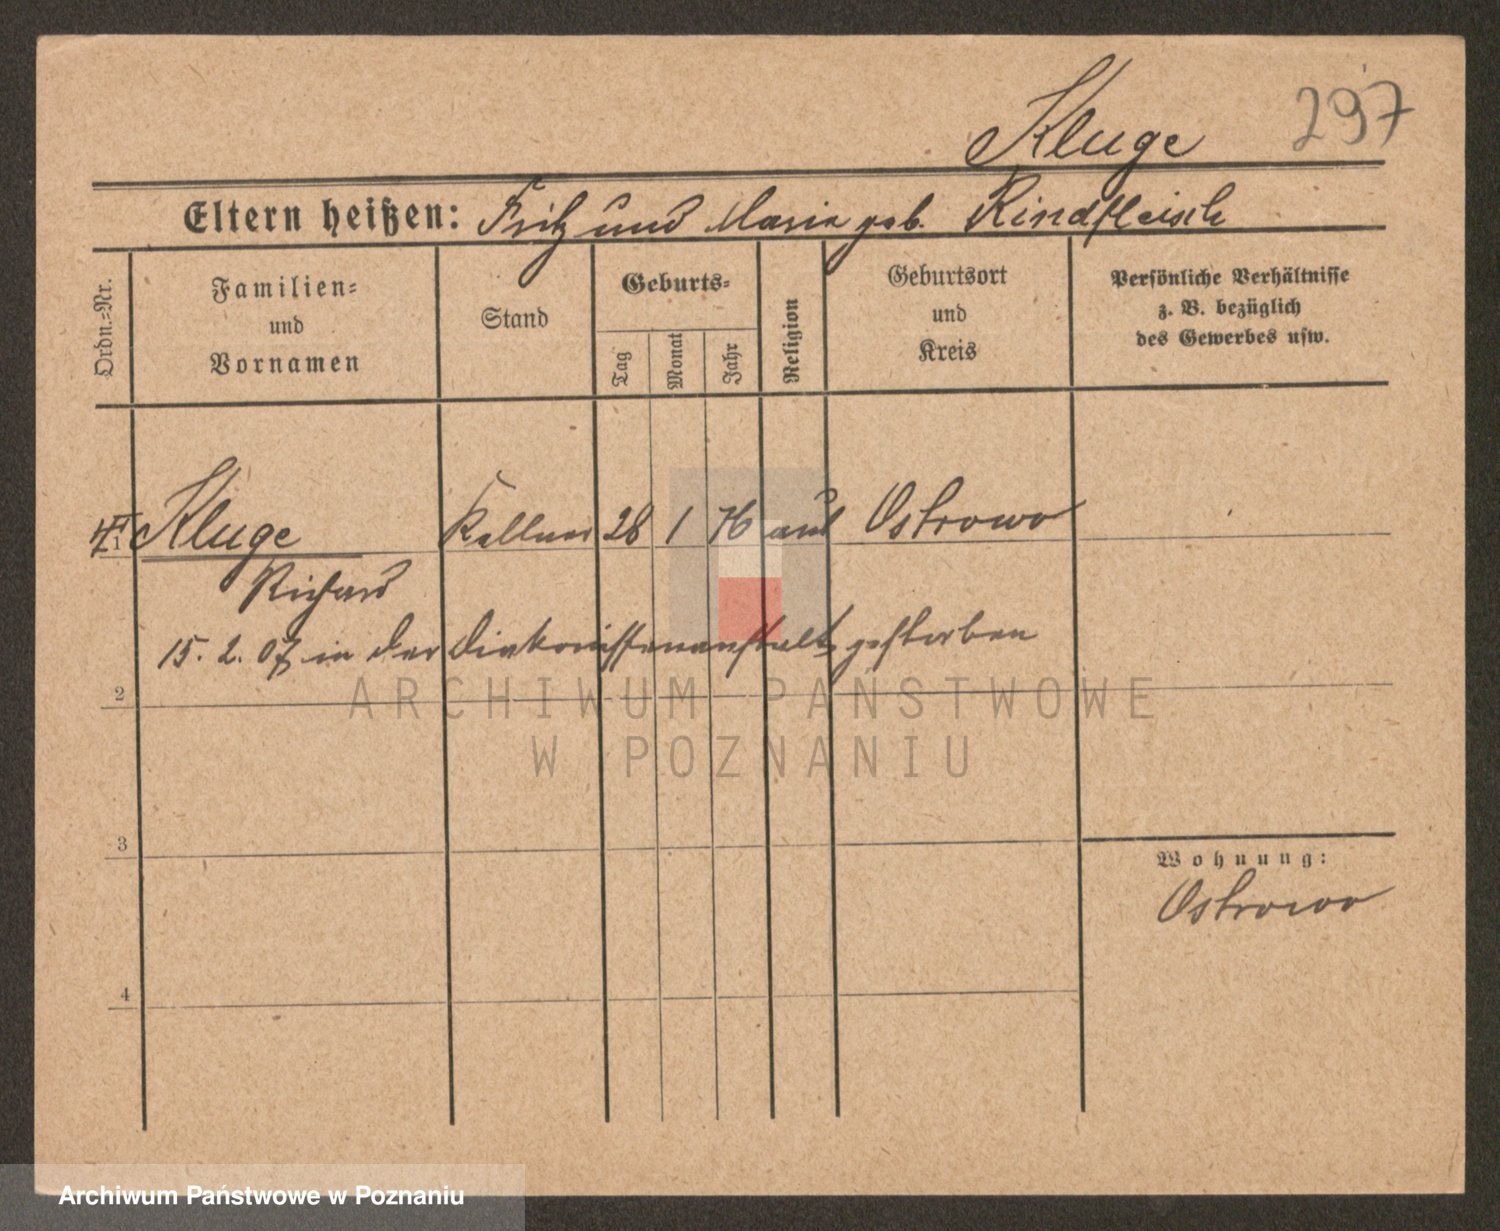 Kluge 297
Eltern heißen: Fritz und Maria geb. Rindfleisch
Ordn.-Nr.
Familien-
und
Vornamen
Stand
Geburts-
Tag
Monat
Jahr
Religion
Geburtsort
und
Kreis
Persönliche Verhältnisse
z. B. bezüglich
des Gewerbes usw.
1 Kluge Kellner 28 1 76 Ostrowo
Richard
15. 2. 07 in der Diakonissenanstalt gestorben
2
ARCHIWUM PAŃSTWOWE
W POZNANIU
3
Wohnung:
Ostrowo
4
Archiwum Państwowe w Poznaniu